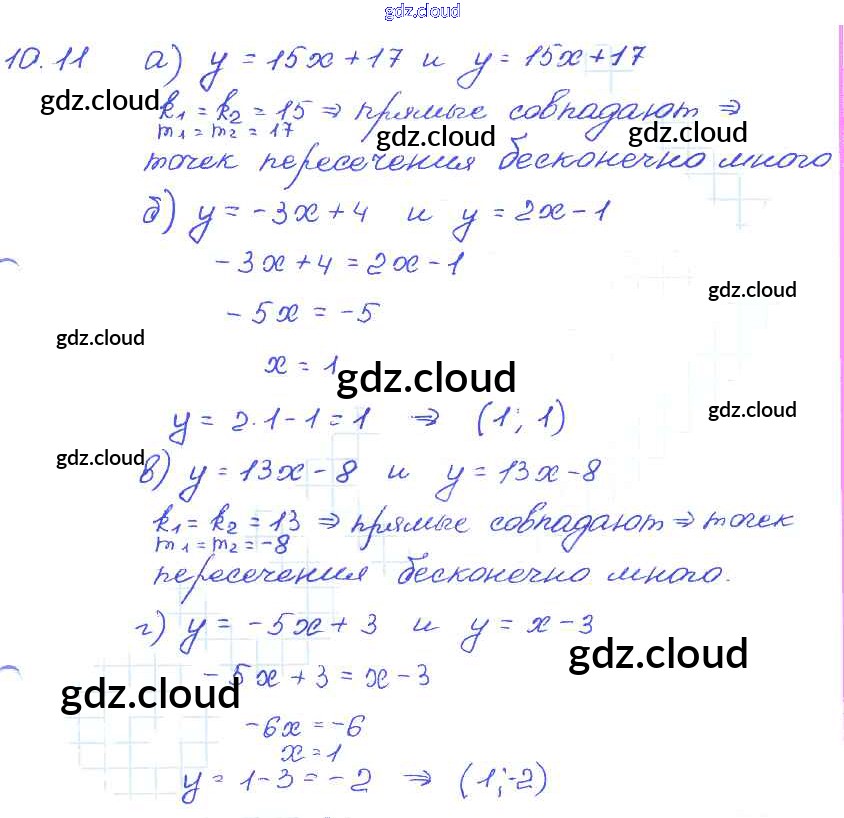 gdz.cloud
10.11 а) y = 15x + 17 и y = 15x + 17
gdz.cloud
k₁ = k₂ = 15 ⇒ прямые совпадают ⇒
m₁ = m₂ = 17
gdz.cloud gdz.cloud
точек пересечения бесконечно много
б) y = -3x + 4 и y = 2x - 1
-3x + 4 = 2x - 1
gdz.cloud
-5x = -5
gdz.cloud
x = 1
gdz.cloud
gdz.cloud
y = 2·1 - 1 = 1 ⇒ (1; 1)
gdz.cloud
в) y = 13x - 8 и y = 13x - 8
k₁ = k₂ = 13 ⇒ прямые совпадают ⇒ точек
m₁ = m₂ = -8
пересечения бесконечно много.
г) y = -5x + 3 и y = x - 3
gdz.cloud
-5x + 3 = x - 3
gdz.cloud
-6x = -6
x = 1
y = 1 - 3 = -2 ⇒ (1; -2)